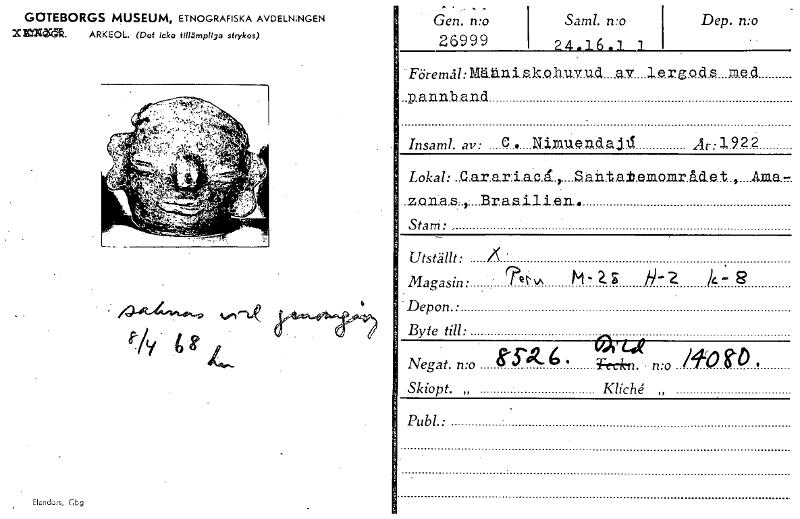 GÖTEBORGS MUSEUM, ETNOGRAFISKA AVDELNINGEN
ARKEOL. (Det icke tillämpliga strykes)
saknas vid genomgång
8/4 68
Elanders, Gbg
Gen. n:o Saml. n:o Dep. n:o
26999 24.16.1 1
Föremål: Människohuvud av lergods med
pannband
Insaml. av: C. Nimuendajú År: 1922
Lokal: Carariacá, Santaremområdet, Ama-
zonas, Brasilien.
Stam:
Utställt: X
Magasin: Peru M-25 H-2 K-8
Depon.:
Byte till:
Bild
Negat. n:o 8526. Teckn. n:o 14080.
Skiopt. „ Kliché „
Publ.: